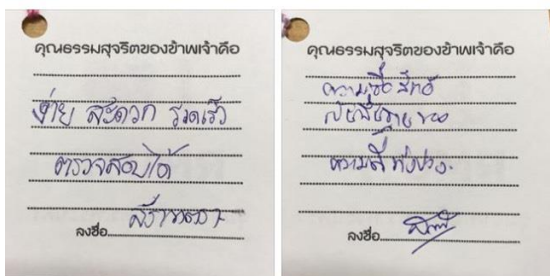 คุณธรรมสุจริตของข้าพเจ้าคือ
ง่าย สะดวก รวดเร็ว
ตรวจสอบได้
ลงชื่อ
คุณธรรมสุจริตของข้าพเจ้าคือ
ความซื่อสัตย์
เป็นพื้นฐานของ
ความดีทั้งปวง
ลงชื่อ